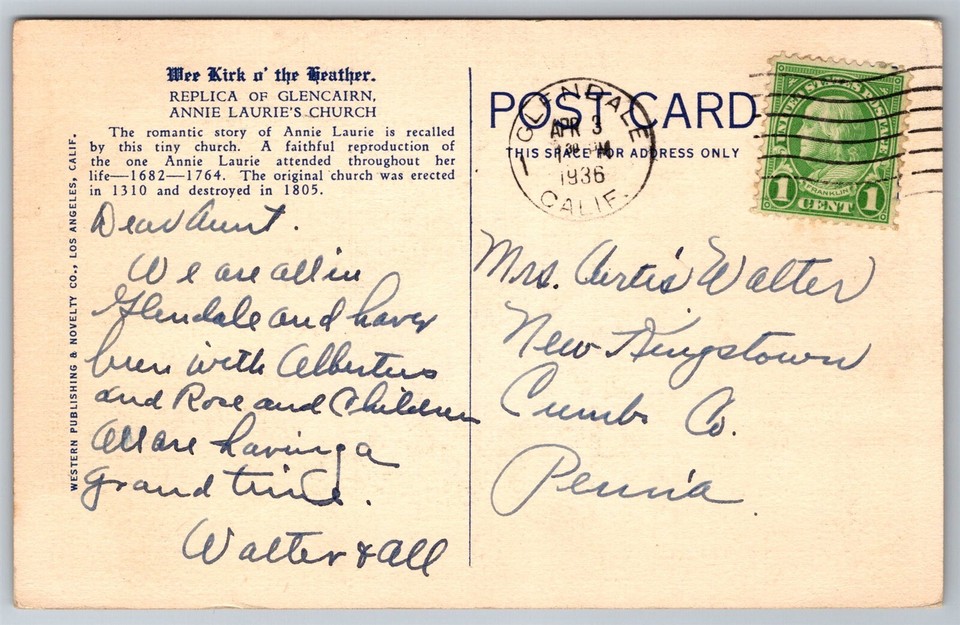 Wee Kirk o' the Heather.
REPLICA OF GLENCAIRN,
ANNIE LAURIE'S CHURCH
The romantic story of Annie Laurie is recalled
by this tiny church. A faithful reproduction of
the one Annie Laurie attended throughout her
life—1682—1764. The original church was erected
in 1310 and destroyed in 1805.
WESTERN PUBLISHING & NOVELTY CO., LOS ANGELES, CALIF.
Dear Aunt.
We are all in
Glendale and have
been with Albertus
and Rose and Children
All are having a
grand time.
Walter & All
POST CARD
THIS SPACE FOR ADDRESS ONLY
GLENDALE
APR 3
30 PM
1936
CALIF.
1
UNITED STATES POSTAGE
FRANKLIN
1 CENT 1
Mrs. Curtis Walter
New Kingstown
Cumb. Co.
Penn'a